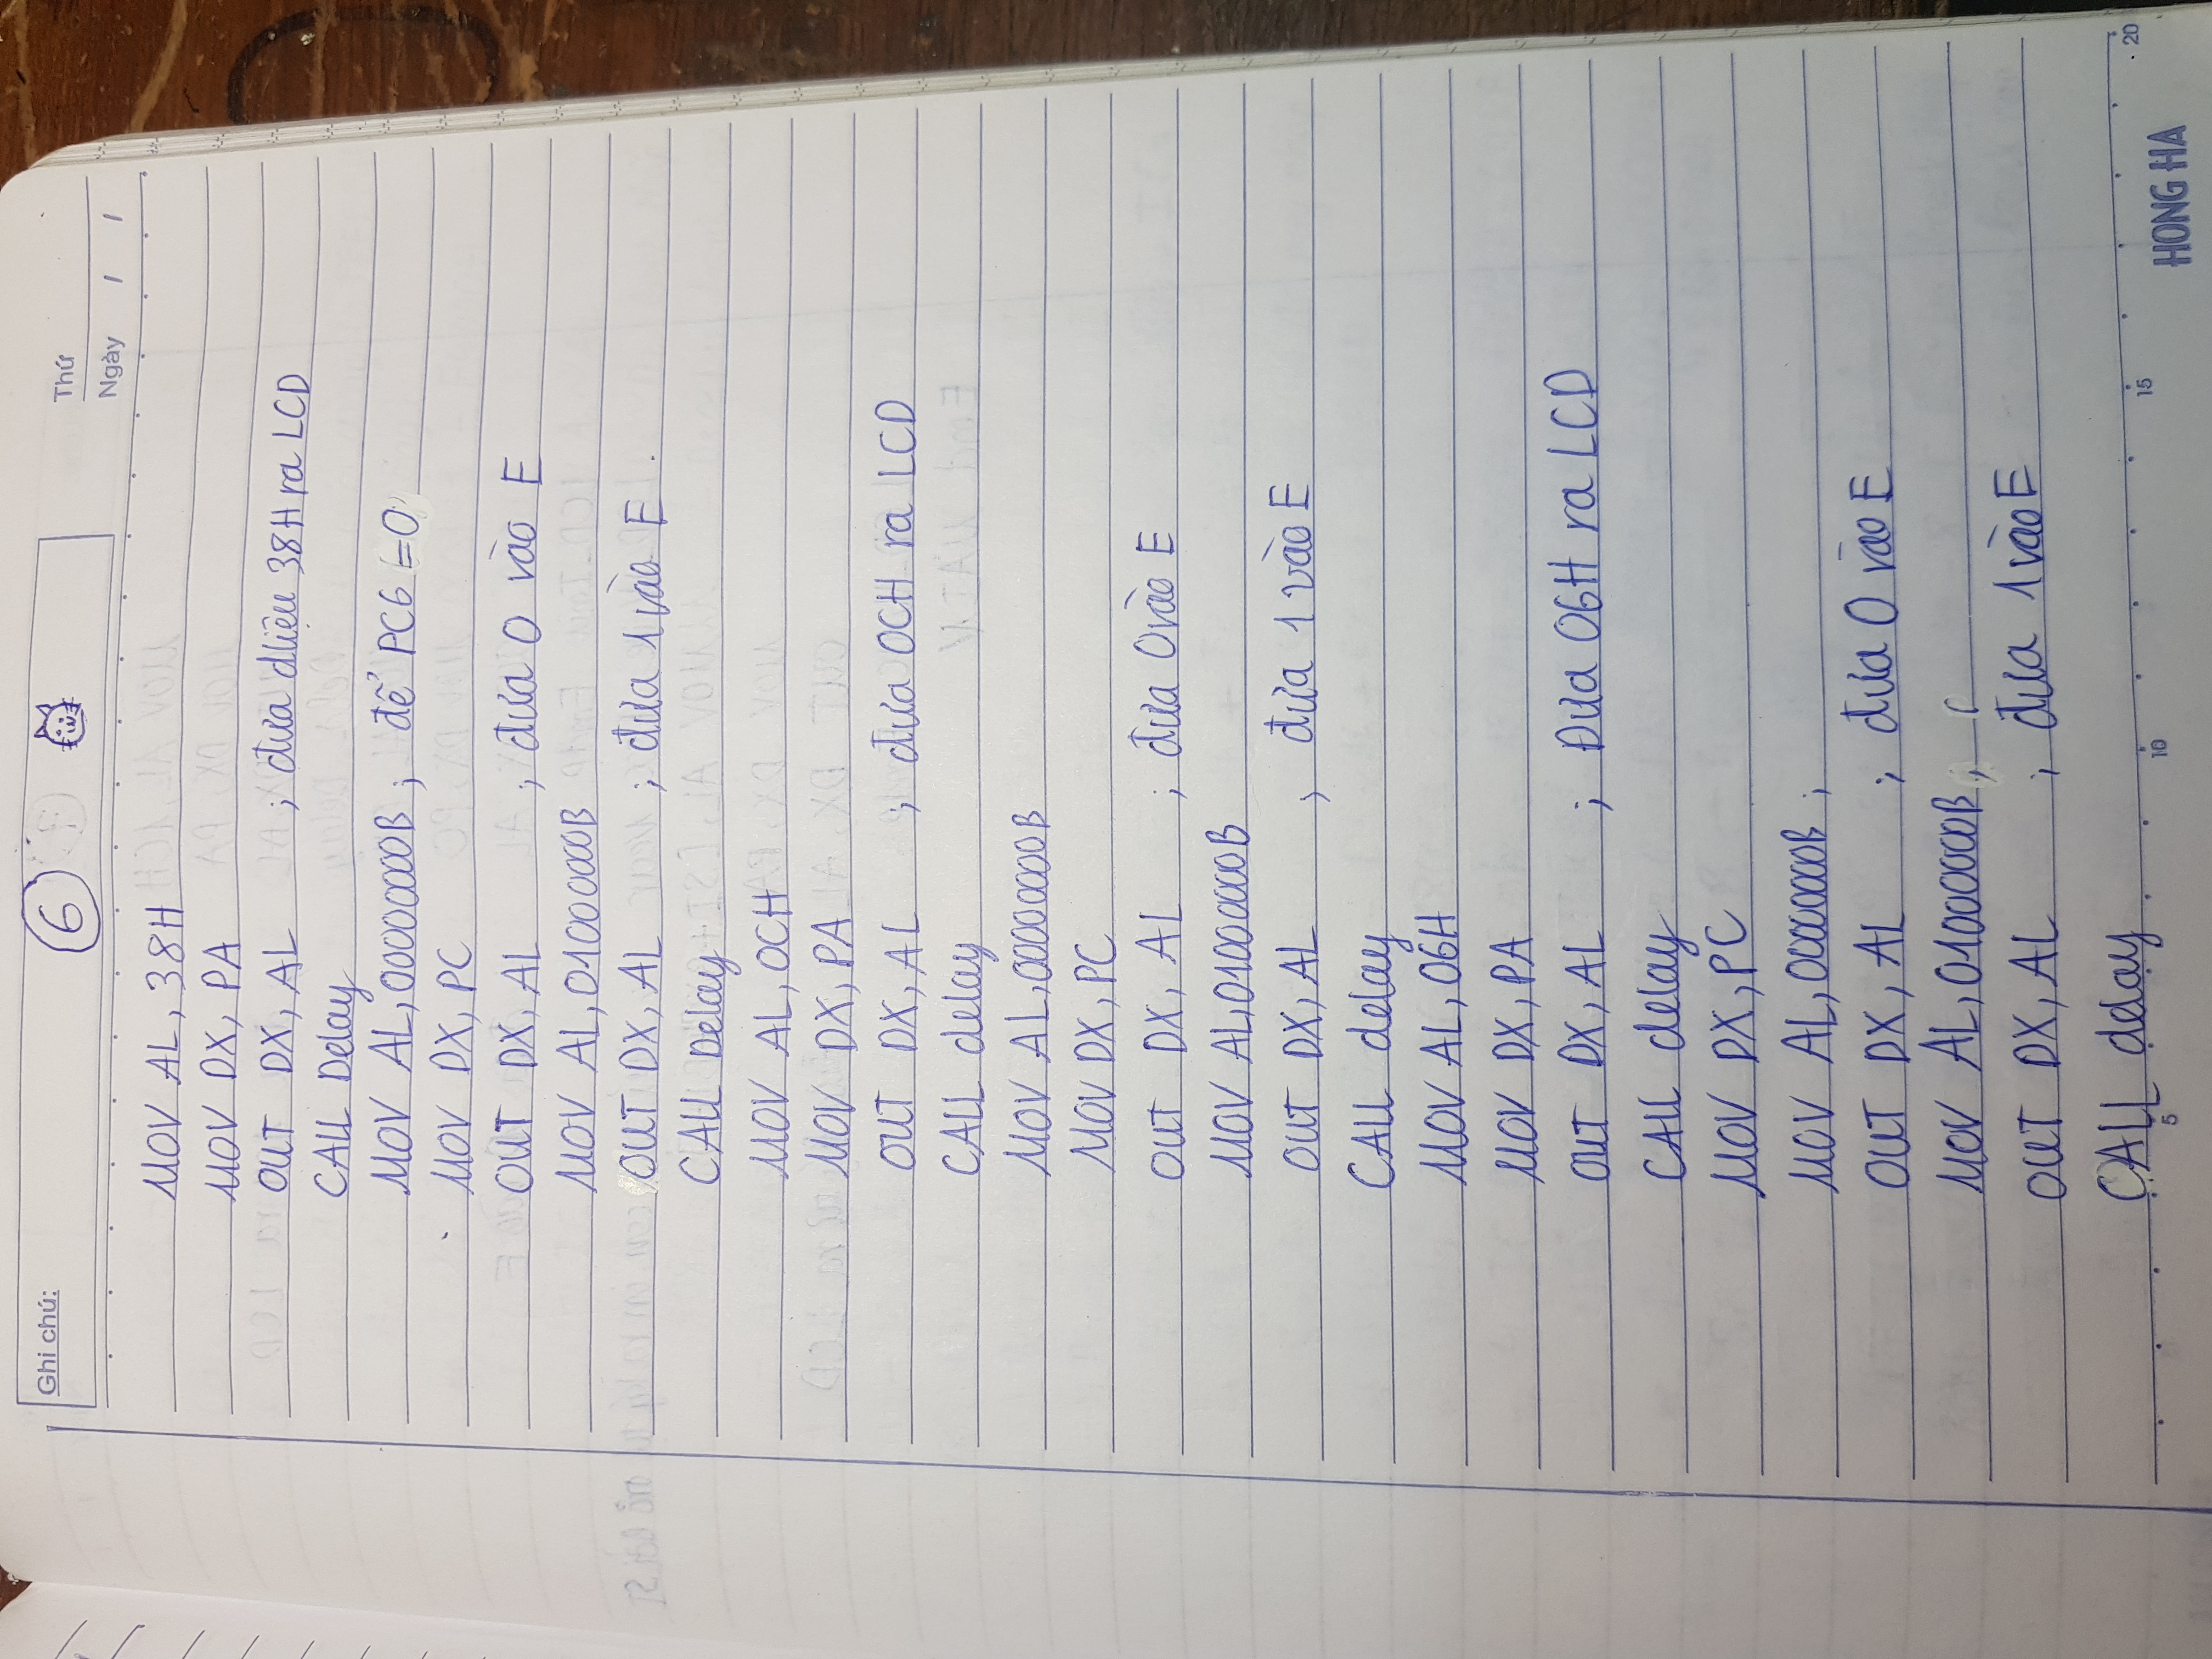 Ghi chú:
6
Thứ
Ngày / /
MOV AL, 38H
MOV DX, PA
OUT DX, AL ; đưa dliệu 38H ra LCD
CALL Delay
MOV AL, 00000000B ; để PC6 = 0
MOV DX, PC
OUT DX, AL ; đưa 0 vào E
MOV AL, 01000000B
OUT DX, AL ; đưa 1 vào E
CALL Delay
MOV AL, 0CH
MOV DX, PA
OUT DX, AL ; đưa 0CH ra LCD
CALL delay
MOV AL, 00000000B
MOV DX, PC
OUT DX, AL ; đưa 0 vào E
MOV AL, 01000000B
OUT DX, AL ; đưa 1 vào E
CALL delay
MOV AL, 06H
MOV DX, PA
OUT DX, AL ; Đưa 06H ra LCD
CALL delay
MOV DX, PC
MOV AL, 00000000B ;
OUT DX, AL ; đưa 0 vào E
MOV AL, 01000000B ;
OUT DX, AL ; đưa 1 vào E
CALL delay
5 10 15 20
HONG HA